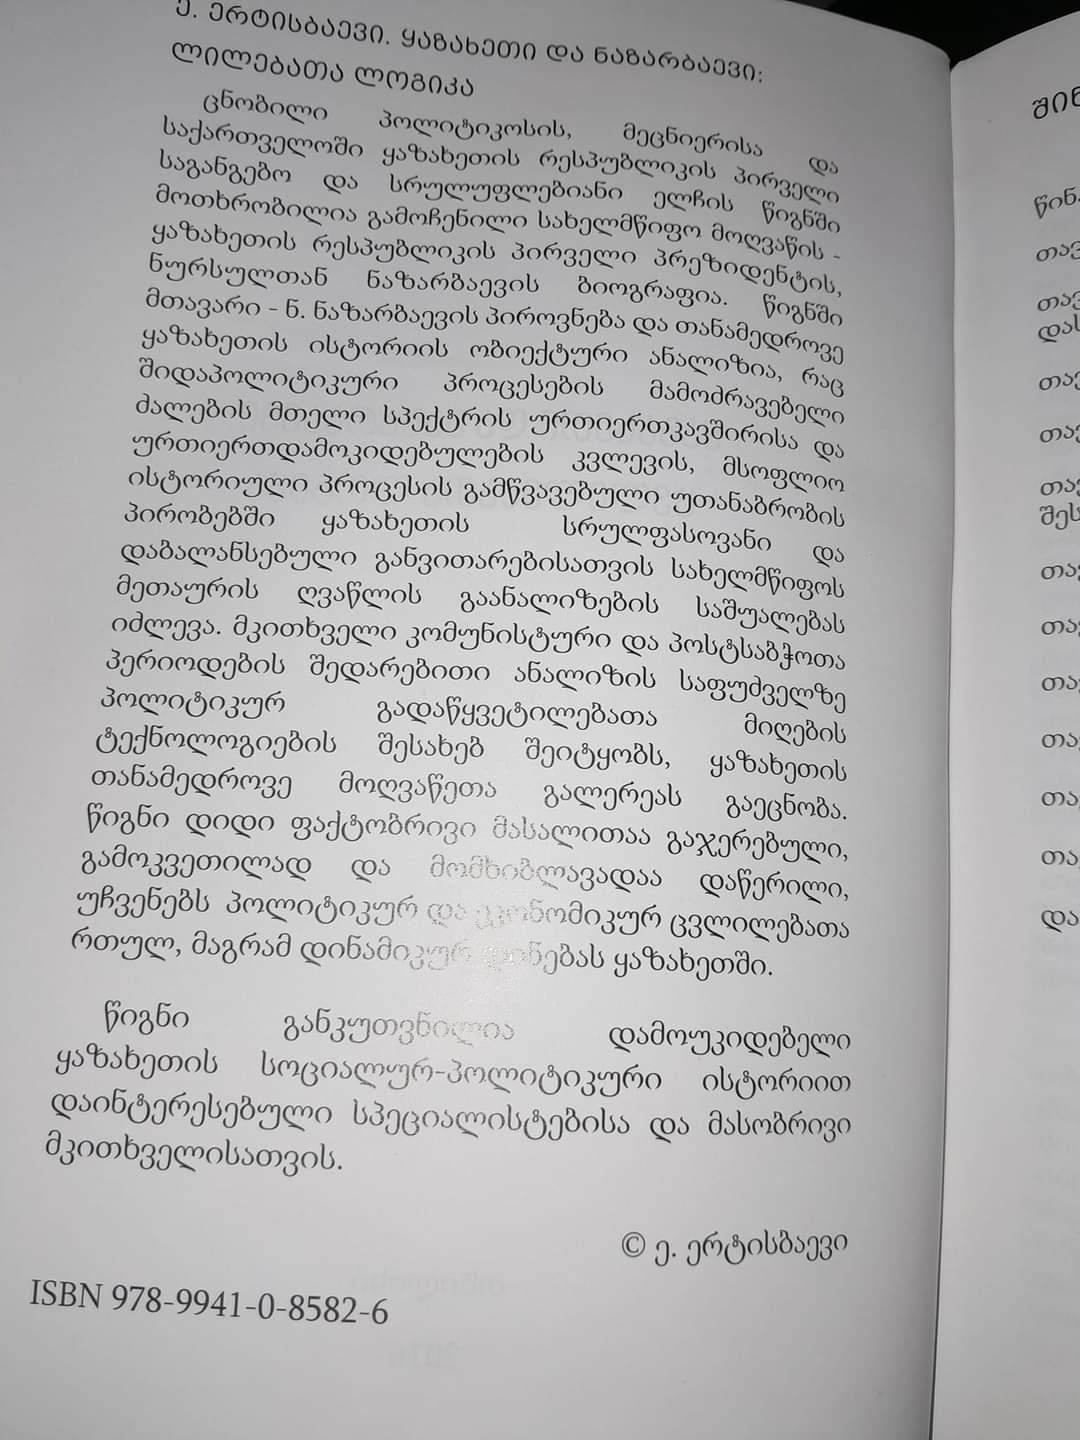 ე. ერტისბაევი. ყაზახეთი და ნაზარბაევი:
ლილებათა ლოგიკა
ცნობილი პოლიტიკოსის, მეცნიერისა და
საქართველოში ყაზახეთის რესპუბლიკის პირველი
საგანგებო და სრულუფლებიანი ელჩის წიგნში
მოთხრობილია გამოჩენილი სახელმწიფო მოღვაწის -
ყაზახეთის რესპუბლიკის პირველი პრეზიდენტის,
ნურსულთან ნაზარბაევის ბიოგრაფია. წიგნში
მთავარი - ნ. ნაზარბაევის პიროვნება და თანამედროვე
ყაზახეთის ისტორიის ობიექტური ანალიზია, რაც
შიდაპოლიტიკური პროცესების მამოძრავებელი
ძალების მთელი სპექტრის ურთიერთკავშირისა და
ურთიერთდამოკიდებულების კვლევის, მსოფლიო
ისტორიული პროცესის გამწვავებული უთანაბრობის
პირობებში ყაზახეთის სრულფასოვანი და
დაბალანსებული განვითარებისათვის სახელმწიფოს
მეთაურის ღვაწლის გაანალიზების საშუალებას
იძლევა. მკითხველი კომუნისტური და პოსტსაბჭოთა
პერიოდების შედარებითი ანალიზის საფუძველზე
პოლიტიკურ გადაწყვეტილებათა მიღების
ტექნოლოგიების შესახებ შეიტყობს, ყაზახეთის
თანამედროვე მოღვაწეთა გალერეას გაეცნობა.
წიგნი დიდი ფაქტობრივი მასალითაა გაჯერებული,
გამოკვეთილად და მომხიბლავადაა დაწერილი,
უჩვენებს პოლიტიკურ და ეკონომიკურ ცვლილებათა
რთულ, მაგრამ დინამიკურ დინებას ყაზახეთში.
წიგნი განკუთვნილია დამოუკიდებელი
ყაზახეთის სოციალურ-პოლიტიკური ისტორიით
დაინტერესებული სპეციალისტებისა და მასობრივი
მკითხველისათვის.
© ე. ერტისბაევი
ISBN 978-9941-0-8582-6